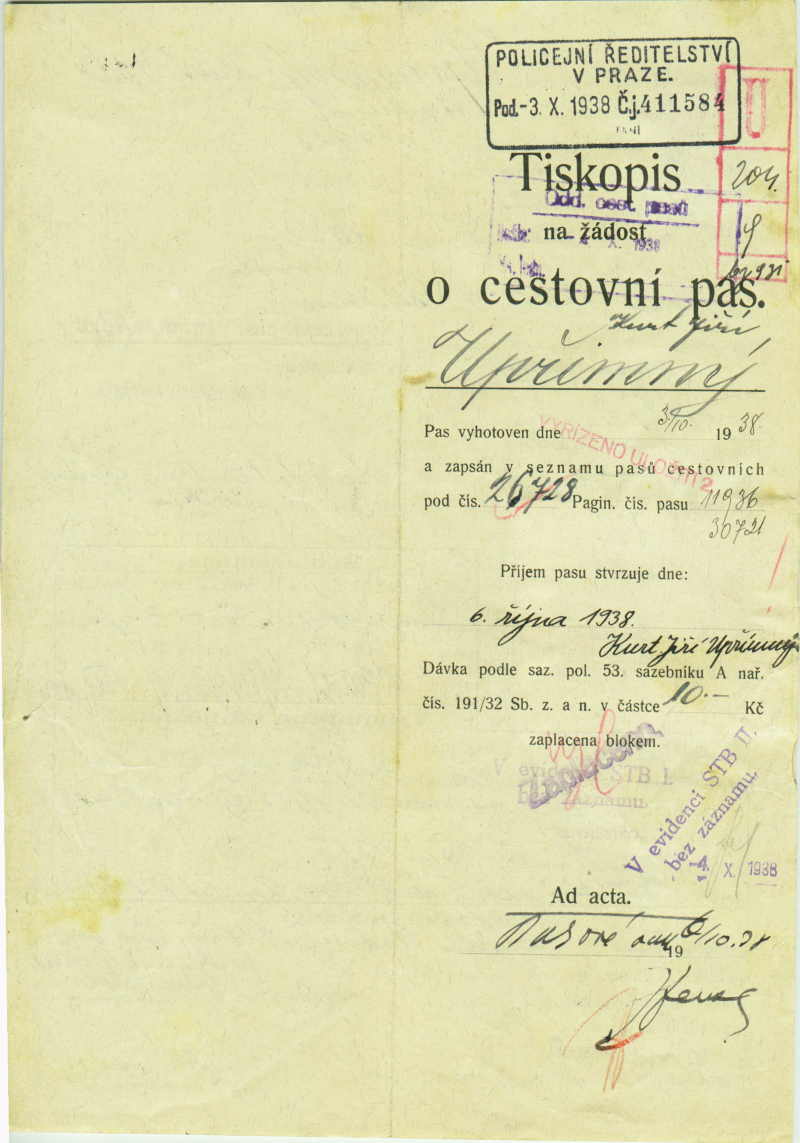 POLICEJNÍ ŘEDITELSTVÍ
V PRAZE.
Pod.-3. X. 1938 Č.j. 411584
Tiskopis
204.
Odd. cest. pasů
na žádost
X. 1938
9
o cestovní pas.
Kurt Jiří
Upřimný
Pas vyhotoven dne 3/10. 19 38.
VYŘÍZENO ULOŽITI
a zapsán v seznamu pasů cestovních
pod čís. 26728 Pagin. čís. pasu 11936
30721
Příjem pasu stvrzuje dne:
6. října 1938.
Kurt Jiří Upřimný
Dávka podle saz. pol. 53. sazebníku A nař.
čís. 191/32 Sb. z. a n. v částce 10.— Kč
zaplacena blokem.
V evidenci STB I.
záznamu.
V evidenci STB II.
bez záznamu.
4. X. 1938
Ad acta.
6/10.38
19